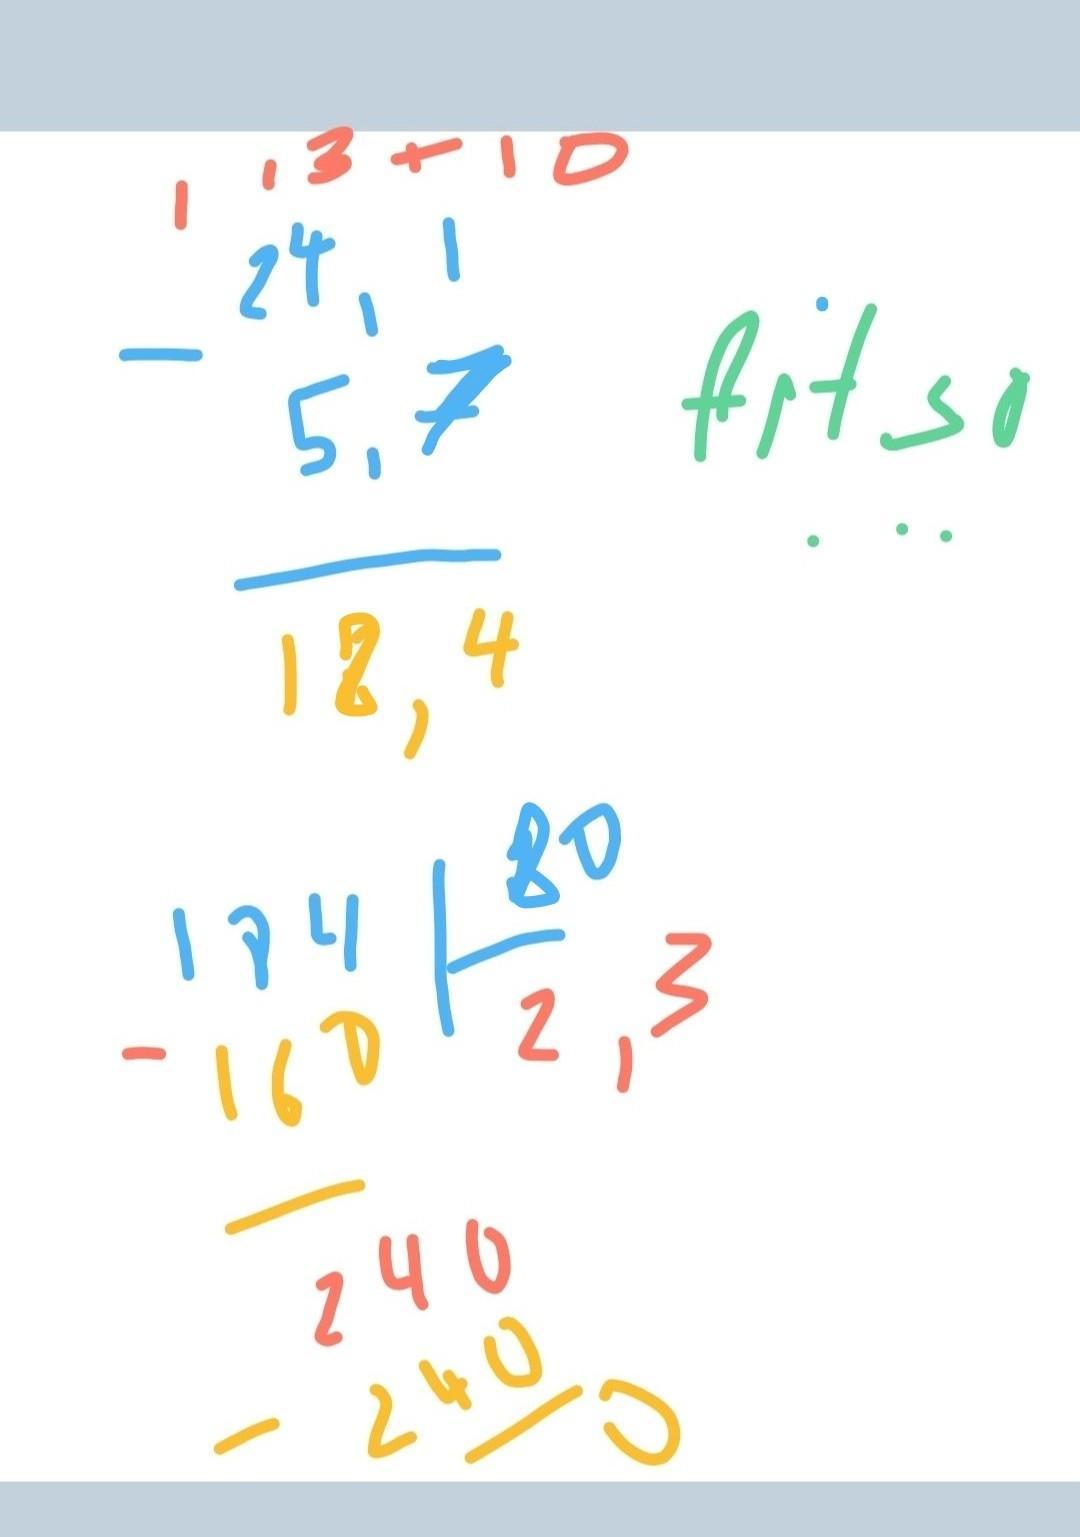 1 13 + 10
24,1
- 5,7
18,4
184 80
- 160 2,3
240
- 240 0